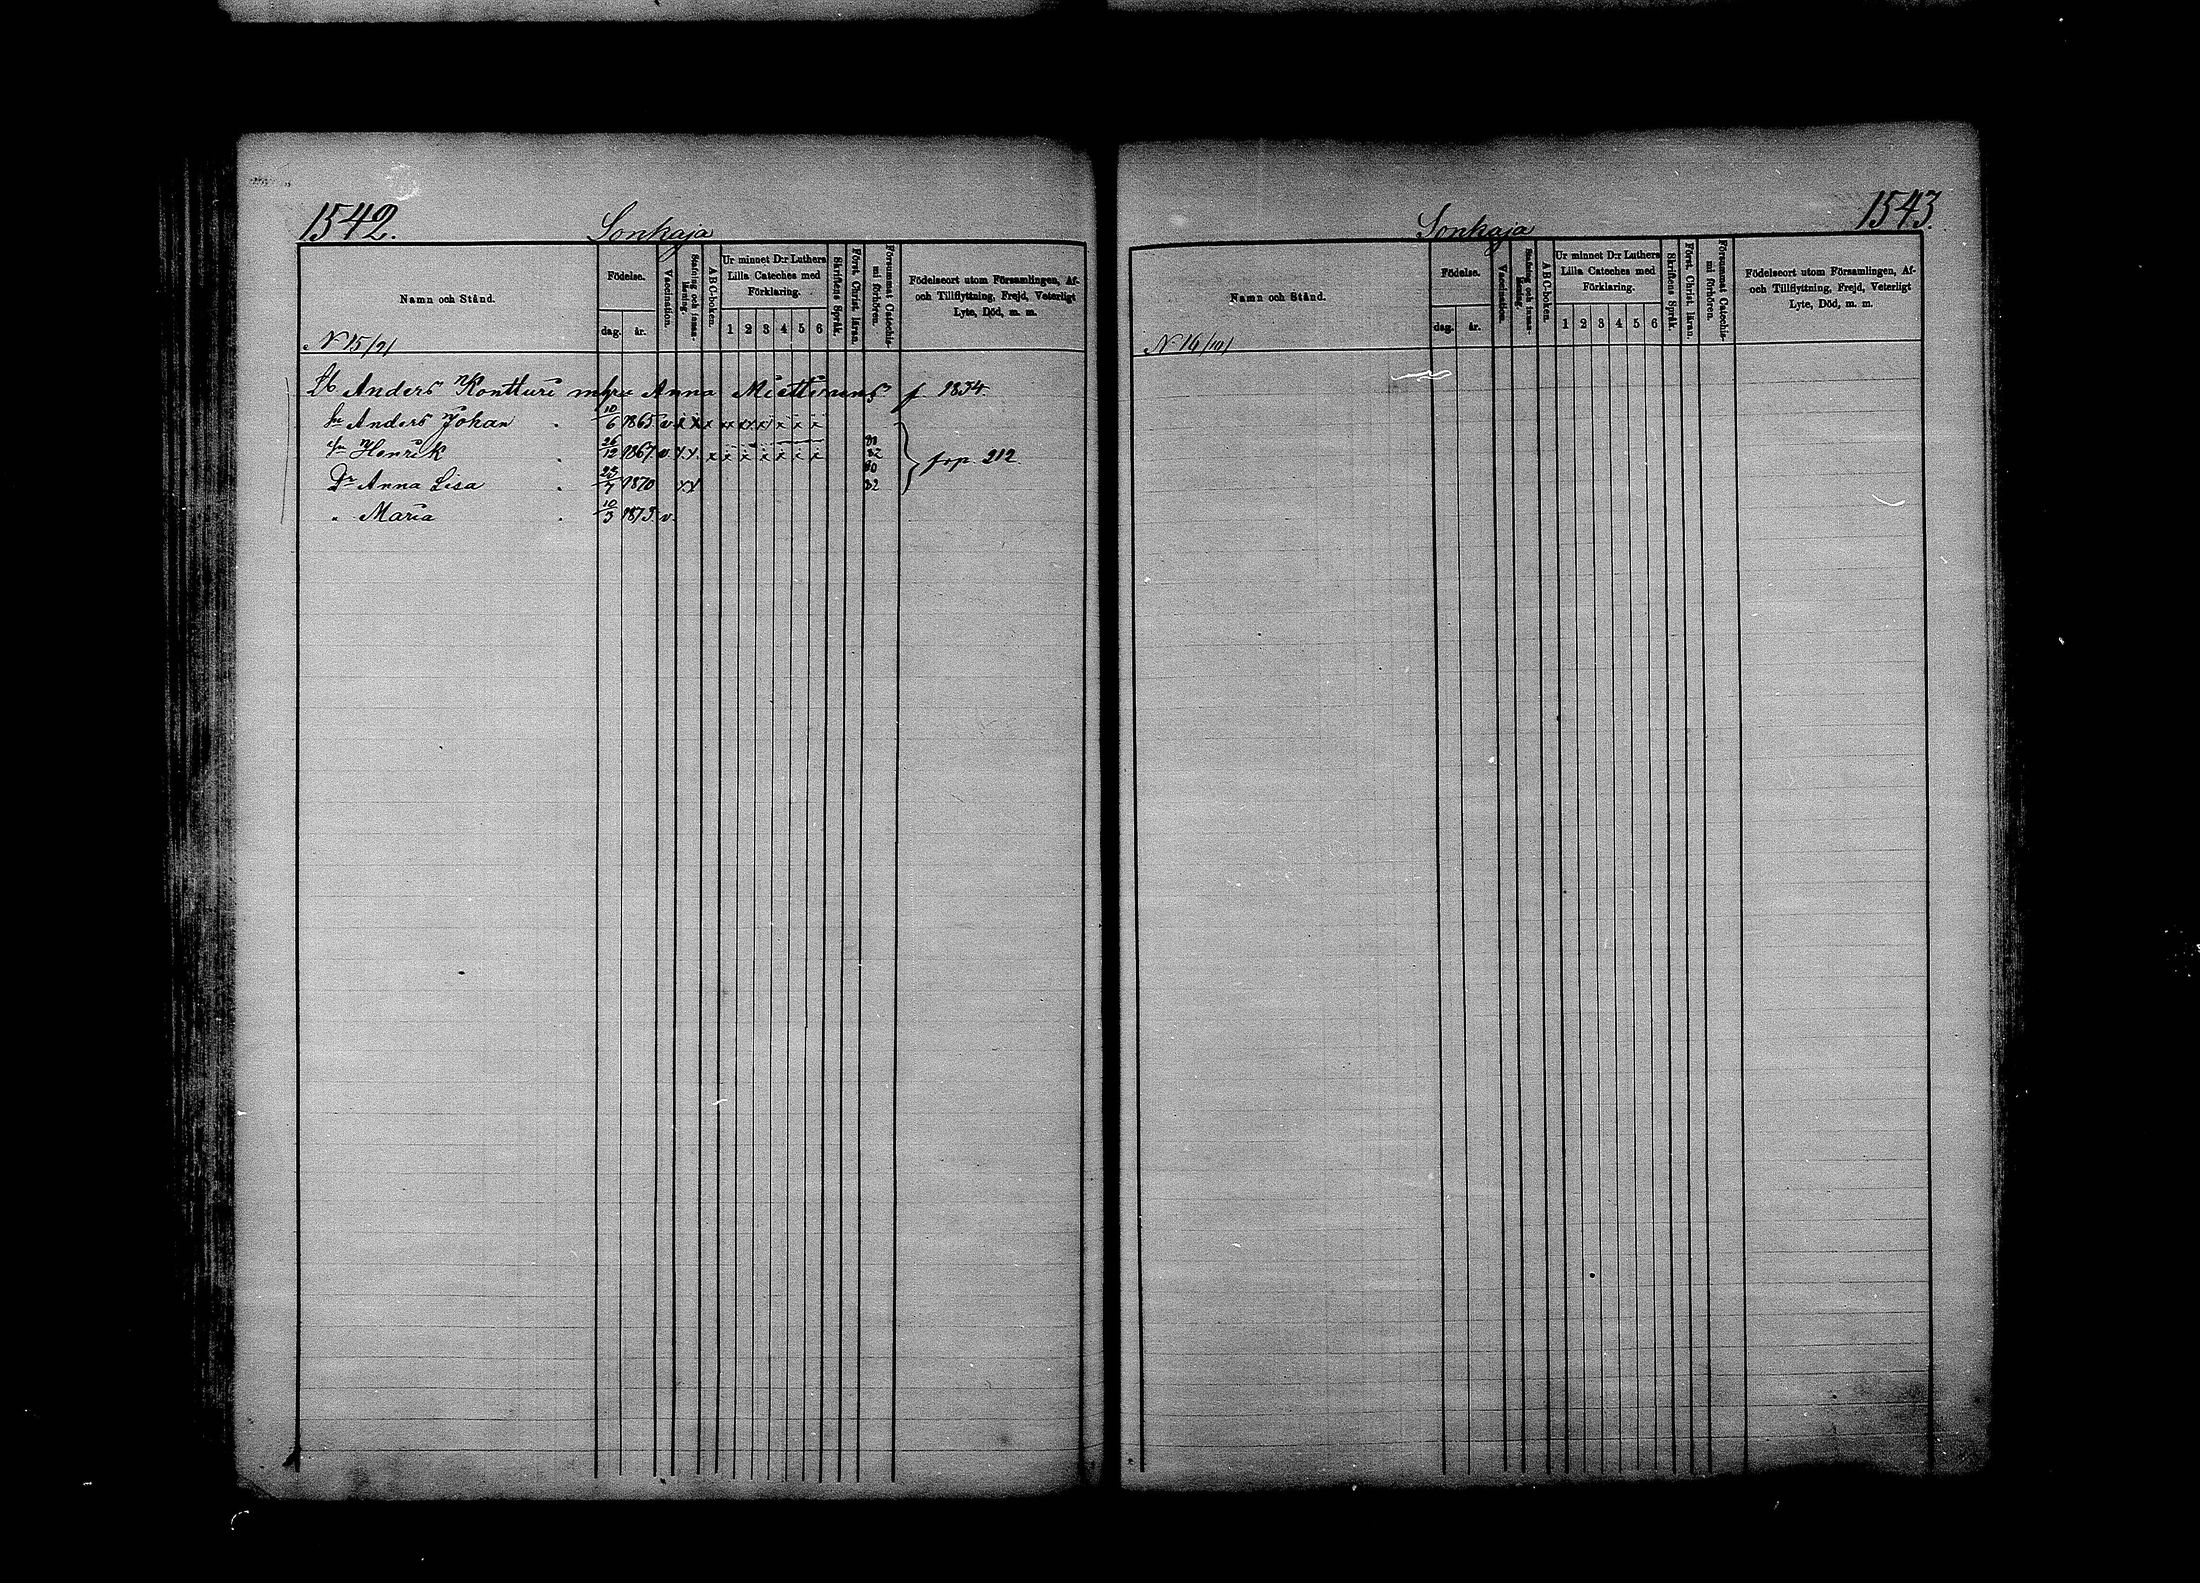 1542.
Sonkaja
Namn och Stånd.
Födelse.
dag.
år.
Vaccination.
Stafning och innan-läsning.
ABC-boken.
Ur minnet D:r Luthers
Lilla Cateches med
Förklaring.
1 2 3 4 5 6
Skriftens Språk.
Först. Christ. läran.
Försummat Catechis-
mi förhören.
Födelseort utom Församlingen, Af-
och Tillflyttning, Frejd, Veterligt
Lyte, Död, m. m.
N 15/9/
Anders Kontturi m hu Anna Miettinens f 1834.
Sn Anders Johan . 10/6 1865 v x x x xx xx x x x x
Sn Henrik . 26/12 1867 v x x x x x x x x x 32
Dr Anna Lisa . 1870 x x 32
frp. 212.
" Maria . 1873 v.
1543.
Sonkaja
Namn och Stånd.
Födelse.
dag.
år.
Vaccination.
Stafning och innan-läsning.
ABC-boken.
Ur minnet D:r Luthers
Lilla Cateches med
Förklaring.
1 2 3 4 5 6
Skriftens Språk.
Först. Christ. läran.
Försummat Catechis-
mi förhören.
Födelseort utom Församlingen, Af-
och Tillflyttning, Frejd, Veterligt
Lyte, Död, m. m.
N 16/10/